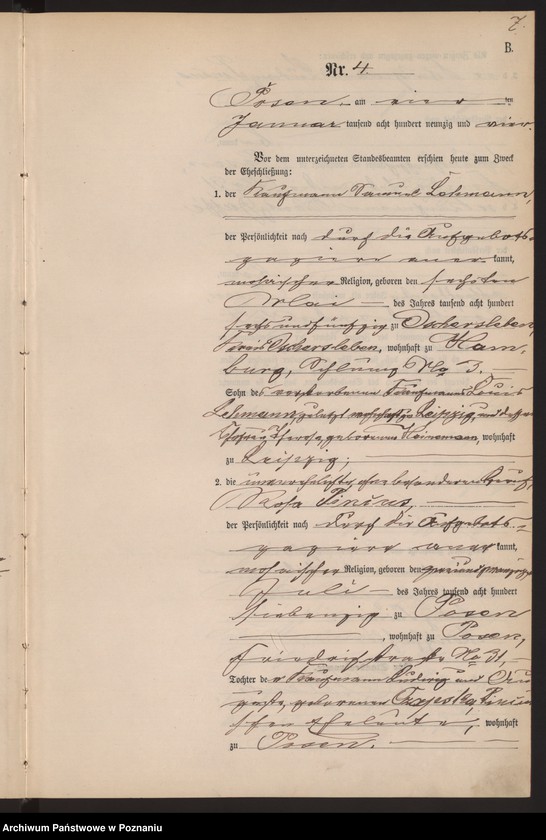 7.
B.
Nr. 4.
Posen, am vier ten
Januar tausend acht hundert neunzig und vier.
Vor dem unterzeichneten Standesbeamten erschien heute zum Zweck
der Eheschließung:
1. der Kaufmann Samuel Lehmann,
der Persönlichkeit nach durch die Aufgebots-
papiere aner kannt,
mosaischer Religion, geboren den sechsten
Mai des Jahres tausend acht hundert
sechs und fünfzig zu Oschersleben,
Kreis Oschersleben, wohnhaft zu Ham-
burg, No 3.
Sohn des verstorbenen Kaufmanns Louis
Lehmann, zuletzt wohnhaft zu Leipzig, und dessen
geborenen Heinemann, wohnhaft
zu Leipzig;
2. die unverehelichte, ohne besonderen Beruf,
Rosa Pincus,
der Persönlichkeit nach durch die Aufgebots-
papiere aner kannt,
mosaischer Religion, geboren den
Juli des Jahres tausend acht hundert
siebenzig zu Posen
, wohnhaft zu Posen,
Friedrichstraße No 31,
Tochter der Kaufmann Ludwig und Au-
guste, geborenen Pincus-
schen Eheleute, wohnhaft
zu Posen.
Archiwum Państwowe w Poznaniu